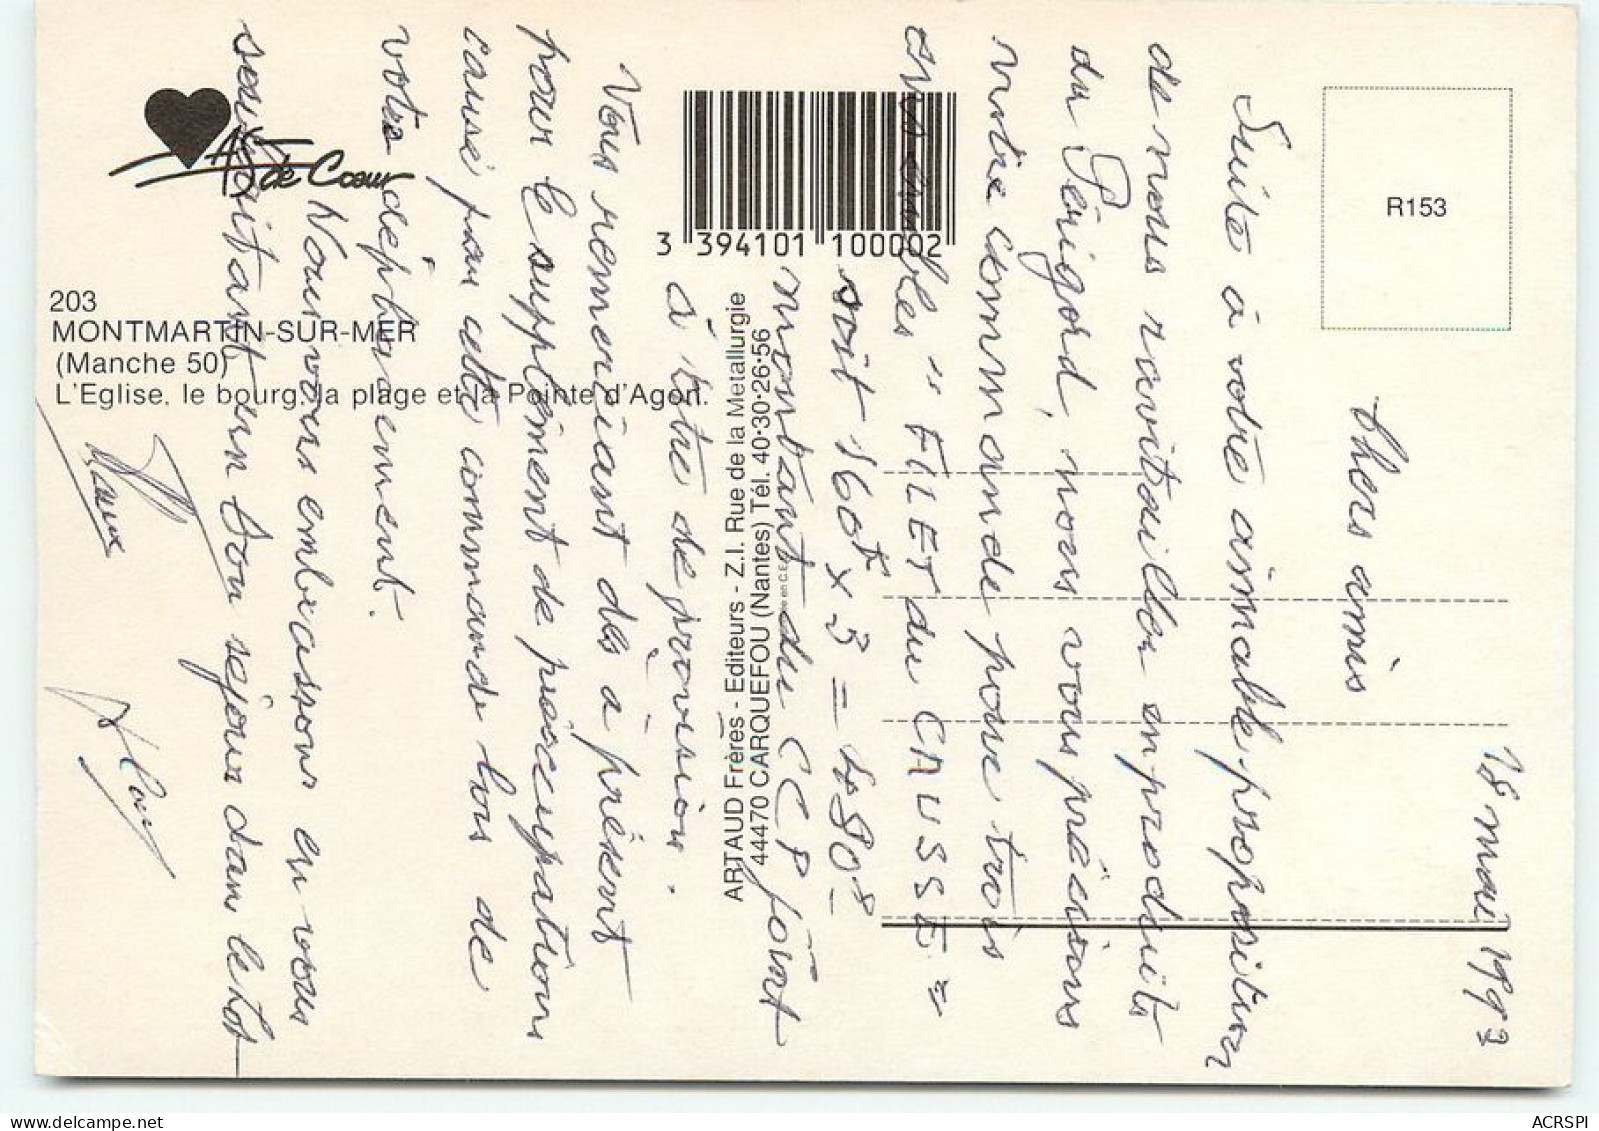 18 mai 1993
Chers amis
Suite à votre aimable proposition
de nous ravitailler en produits
du Périgord, nous vous précisons
notre commande pour trois
ensembles " FILET du CAUSSE "
soit 160F x 3 = 480F
montant du CCP joint
à titre de provision.
Vous remerciant dès à présent
pour le supplément de préoccupations
causé par cette commande lors de
votre déplacement.
Nous vous embrassons en vous
souhaitant un bon séjour dans le Lot
As de Cœur
203
MONTMARTIN-SUR-MER
(Manche 50)
L'Eglise, le bourg, la plage et la Pointe d'Agon.
3 394101 100002
ARTAUD Frères - Editeurs - Z.I. Rue de la Métallurgie
44470 CARQUEFOU (Nantes) Tél. 40·30·26·56
R153
ACRSPI